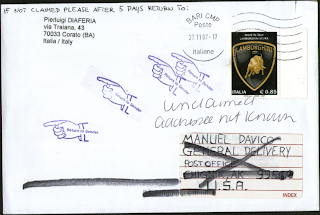 IF NOT CLAIMED PLEASE AFTER 5 DAYS RETURN TO:
Pierluigi DIAFERIA
via Traiana, 43
70033 Corato (BA)
Italia / Italy
BARI CMP
Poste
27.11.07-17
Italiane
LAMBORGHINI
ITALIA € 0.85
Return to Sender
Return to Sender
Return to Sender
unclaimed
addressee not known
Return to Sender
MANUEL DAVICO
GENERAL DELIVERY
POST OFFICE
AK
U.S.A.
INDEX